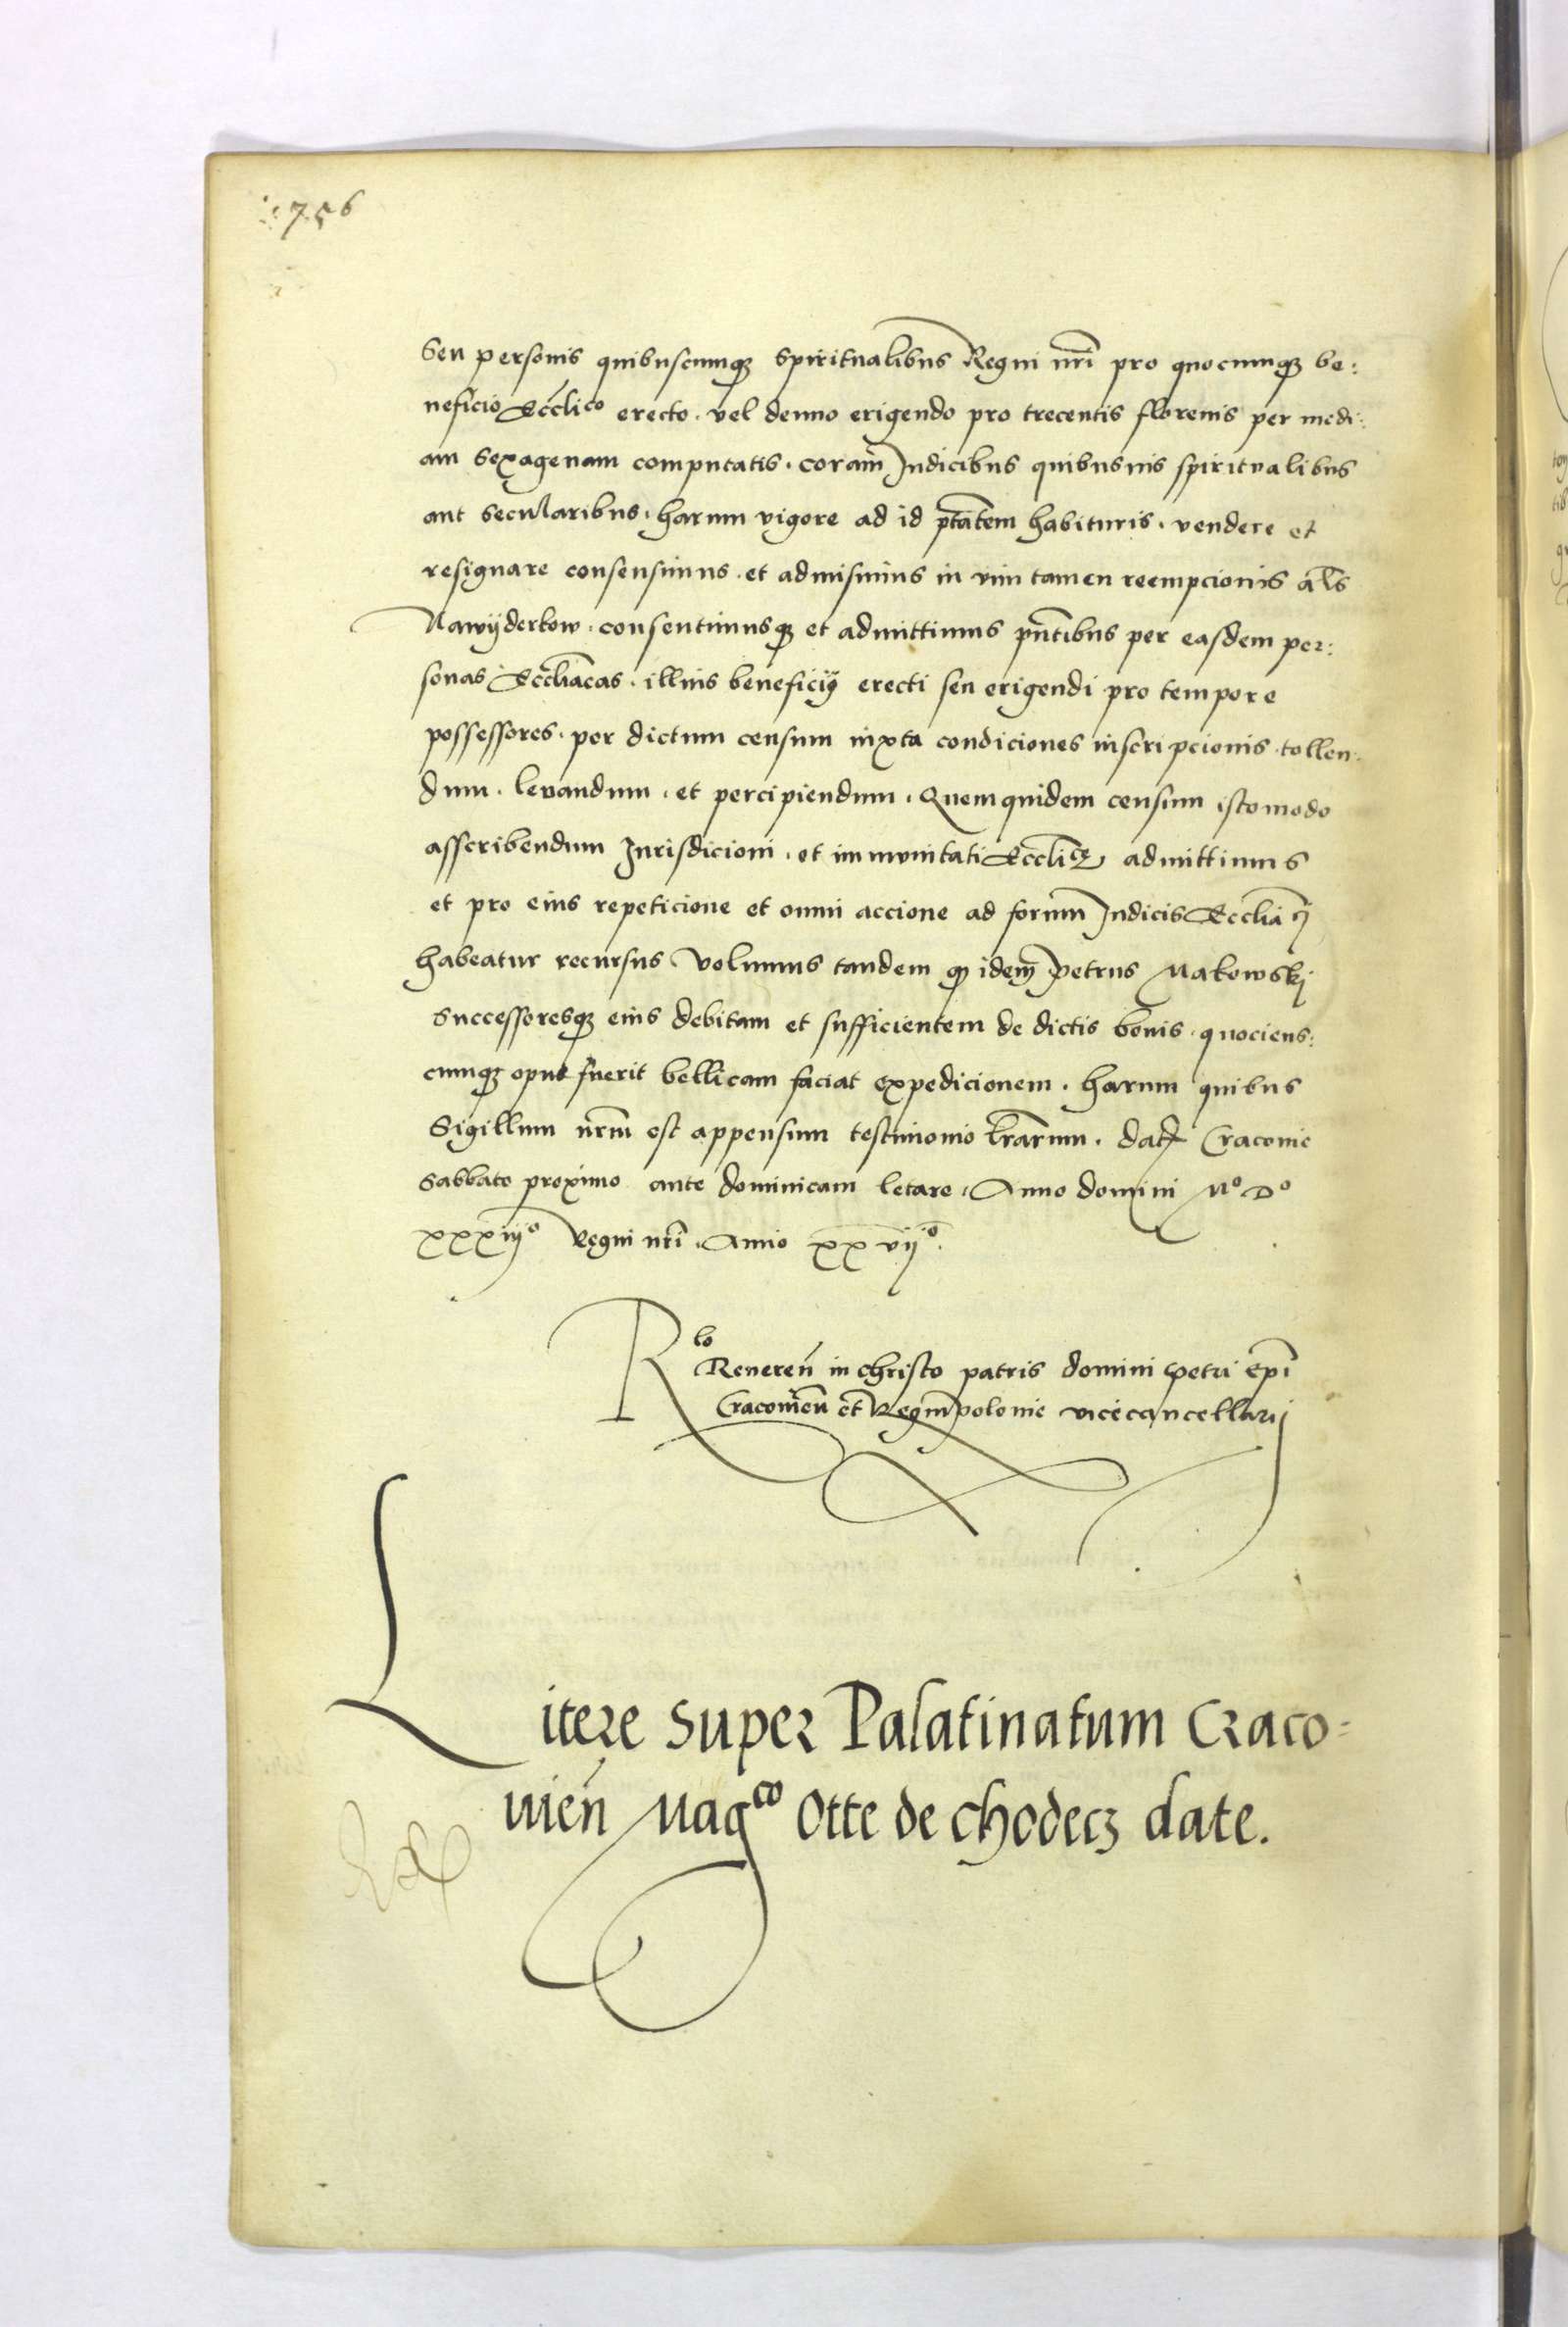 756
Seu personis quibuscumqȝ Spiritualibus Regni nr̃i pro quocumqȝ be:
neficio Ecc̃lico erecto. vel denuo erigendo pro trecentis florenis per medi:
am Sexagenam computatis. coram Judicibus quibusuis spiritualibus
aut Secularibus. harum vigore ad id p̃tatem habituris. vendere et
resignare consensimus. et admisimus in vim tamen reempcionis al̃s
Nawyderkow. consentimusqȝ et admittimus p̃ntibus per easdem per:
sonas Eccl̃iacas. illius beneficij erecti seu erigendi pro tempore
possessores. per dictum censum iuxta condiciones inscripcionis tollen
dum. leuandum. et percipiendum. Quemquidem censum istomodo
asscribendum Jurisdicioni. et immunitati Eccl̃ice admittimus
et pro eius repeticione et omni accione ad forum Judicis Eccl̃iaci
habeatur recursus Volumus tandem qȝ idem Petrus Makowskj
Successoresqȝ eius debitam et sufficientem de dictis bonis. quociens:
cumqȝ opus fuerit bellicam faciat expedicionem. harum quibus
Sigillum nr̃m est appensum testimonio l̃rarum. dat̃ Cracouie
Sabbato proximo ante dominicam letare. Anno domini Mo Do
xxxiijo Regni nr̃i. Anno xxvijo.
Rlo Reueren̄ in christo patris domini petri Ep̃i
Cracouien̄ et Regni polonie vicecancellarij
Litere super Palatinatum Craco=
uien̄ Magco Otte de chodecz date.